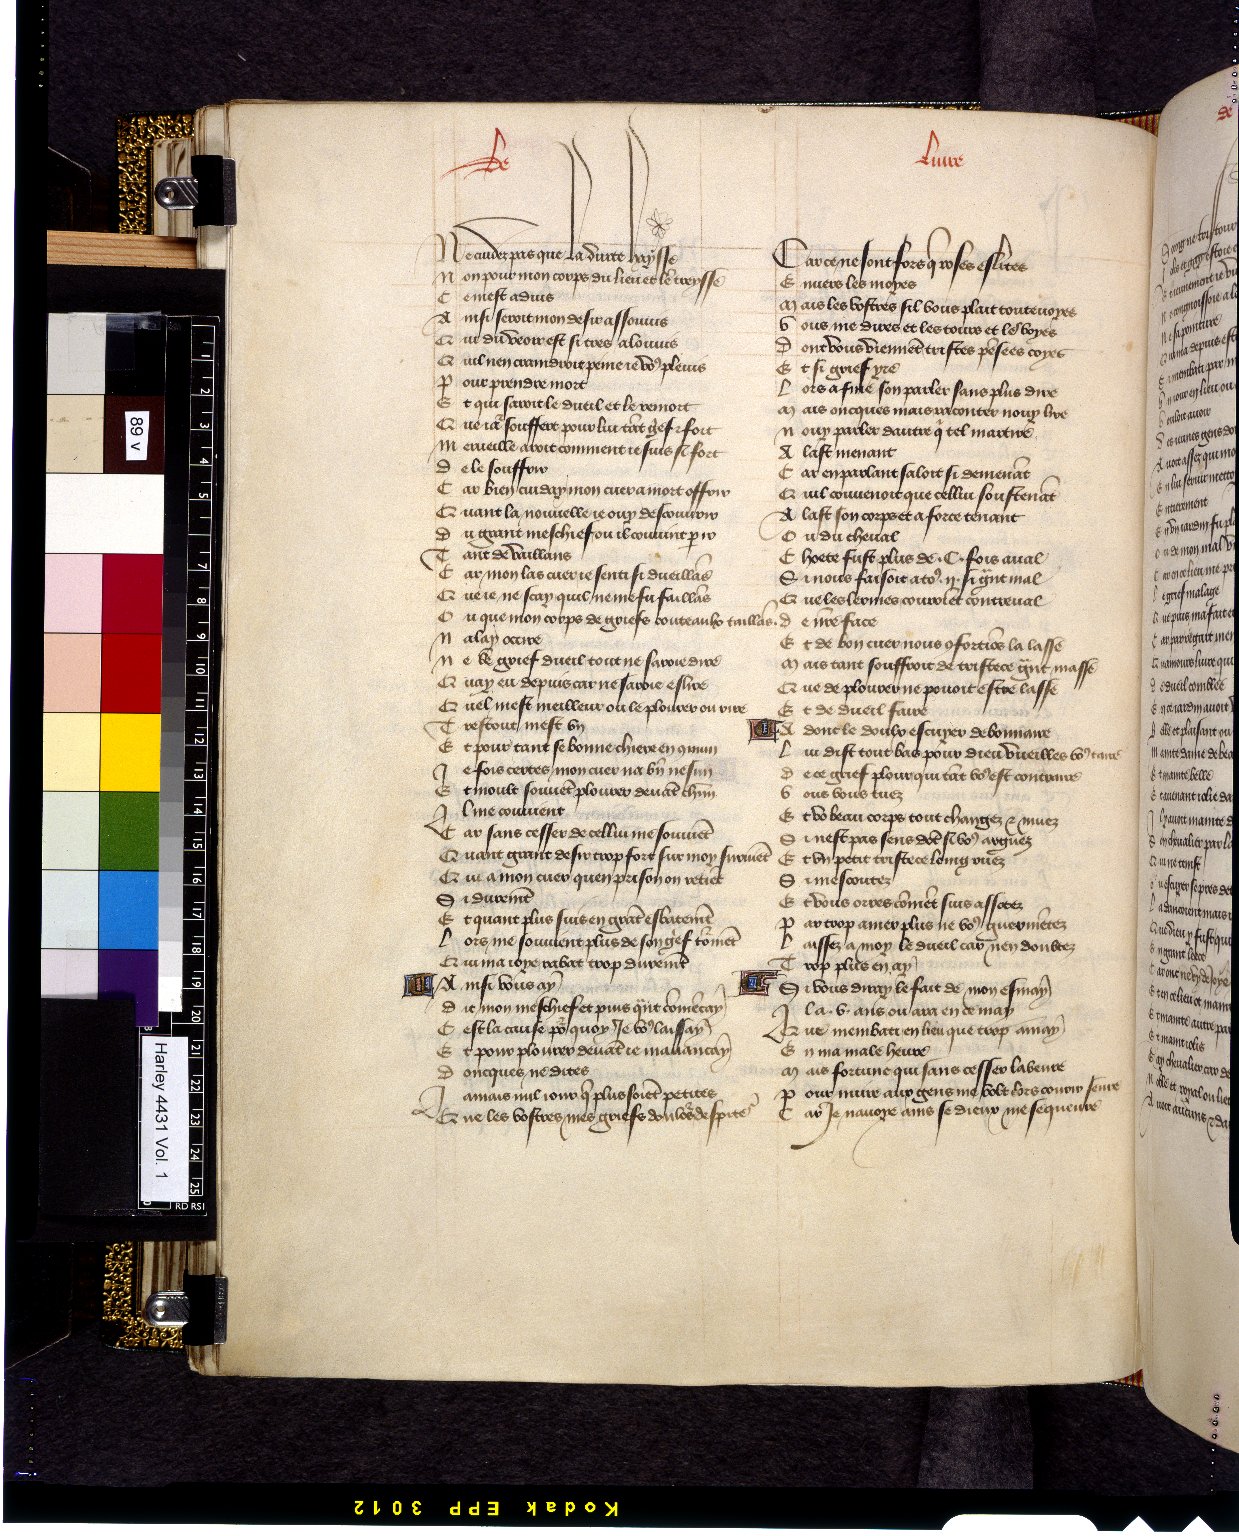 Le
Livre
Ne cuidez pas que la durte heysse
Non pour mon corps du lieu et le treysse
Ce mest aduis
Ainsi seroit mon desir assouuis
Qui du veoir est si tres alouuis
Quil nen craindroit peine ie voꝰ pleuis
Pour prendre mort
Et qui saroit le dueil et le remort
Merueille aroit comment ie suis si fort
De le souffrir
Car bien cuiday mon cuer a mort offrir
Quant la nouuelle ie ouy descouurir
Du grant meschief ou il couuint perir
Tant de vaillans
Car mon las cuer ie senti si dueillãs
Que ie ne scay quil ne me fu faillãs
Ou que mon corps de griefs couteaulx taillãs
Nalay occire
Ne le grief dueil tout ne saroie dire
Quay eu depuis car ne saroie eslire
Quel mest meilleur ou le plourer ou rire
Trestout mest vn
Et pour tant se bonne chiere en cõmun
Je fois certes mon cuer na bien nesun
Et moult souuẽt plourer deuãt chũn
Il me couuient
Car sans cesser de cellui me souuiẽt
Quant grant desir trop fort sur moy suruiẽt
Qui a mon cuer quen prison on retiẽt
Si duremẽt
Et quant plus suis en grãt esbatemẽt
Lors me souuient plus de son gref tormẽt
Qui ma ioye rabat trop duremẽt
Ainsi vous ay
Dit mon meschief et puis quãt cõmẽcay
Cest la cause põr quoy Je voꝰ laissay
Et pour plourer deuãt ie mauancay
Doncques ne dites
Jamais nul iour que plus soiẽt petites
Que les vostres mes griefs doulõrs despites
Car ce ne sont fors que roses eslites
Enuers les moyes
Mais les vostres sil vous plait toutenoyes
Vous me direz et les tours et les voyes
Dont vous viennẽt tristes pẽsees coyes
Et si grief yre
Lors a fine son parler sans plus dire
Mais oncques mais raconter nouy lire
Nouy parler dautre q̃ tel martire
A laft menant
Car en parlant saloit si demenãt
Quil couuenoit que cellui soustenãt
Alast son corps et a force tenant
Ou du cheual
Cheoete fust plus de .C. fois aual
Si nous faisoit a toꝰ .ij. si grant mal
Que les lermes couroiẽt contreual
De nr̃e face
Et de bon cuer nous confortiõs la lasse
Mais tant souffroit de tristece grant masse
Que de plourer ne pouoit estre lasse
Et de dueil faire
Adont le doulx escuyer debonnaire
Lui dist tout bas pour dieu vueilles voꝰ taire
De ce grief plour qui tãt voꝰ est contraire
Vous vous tuez
Et võ beau corps tout changez et muez
Si nest pas sens dõt si voꝰ arguez
Et vn petit tristece loing ruez
Si mescoutez
Et vous orres cõmẽt suis assotez
Par trop amer plus ne voꝰ guermẽtez
Laissez a moy le dueil car nen doubtez
Trop plus en ay
Si vous diray le fait de mon esmay
Il a .v. ans ou ara en ce may
Que membati en lieu que trop amay
En ma male heure
Mais fortune qui sans cesser labeure
Pour nuire aux gens me volt lors courir seure
Car Je nauoye ains se dieux me sequeure
89 v
Harley 4431 Vol. 1
1
2
3
4
5
6
7
8
9
10
11
12
13
14
15
16
17
18
19
20
21
22
23
24
25
RD RSI
Kodak EPP 3012